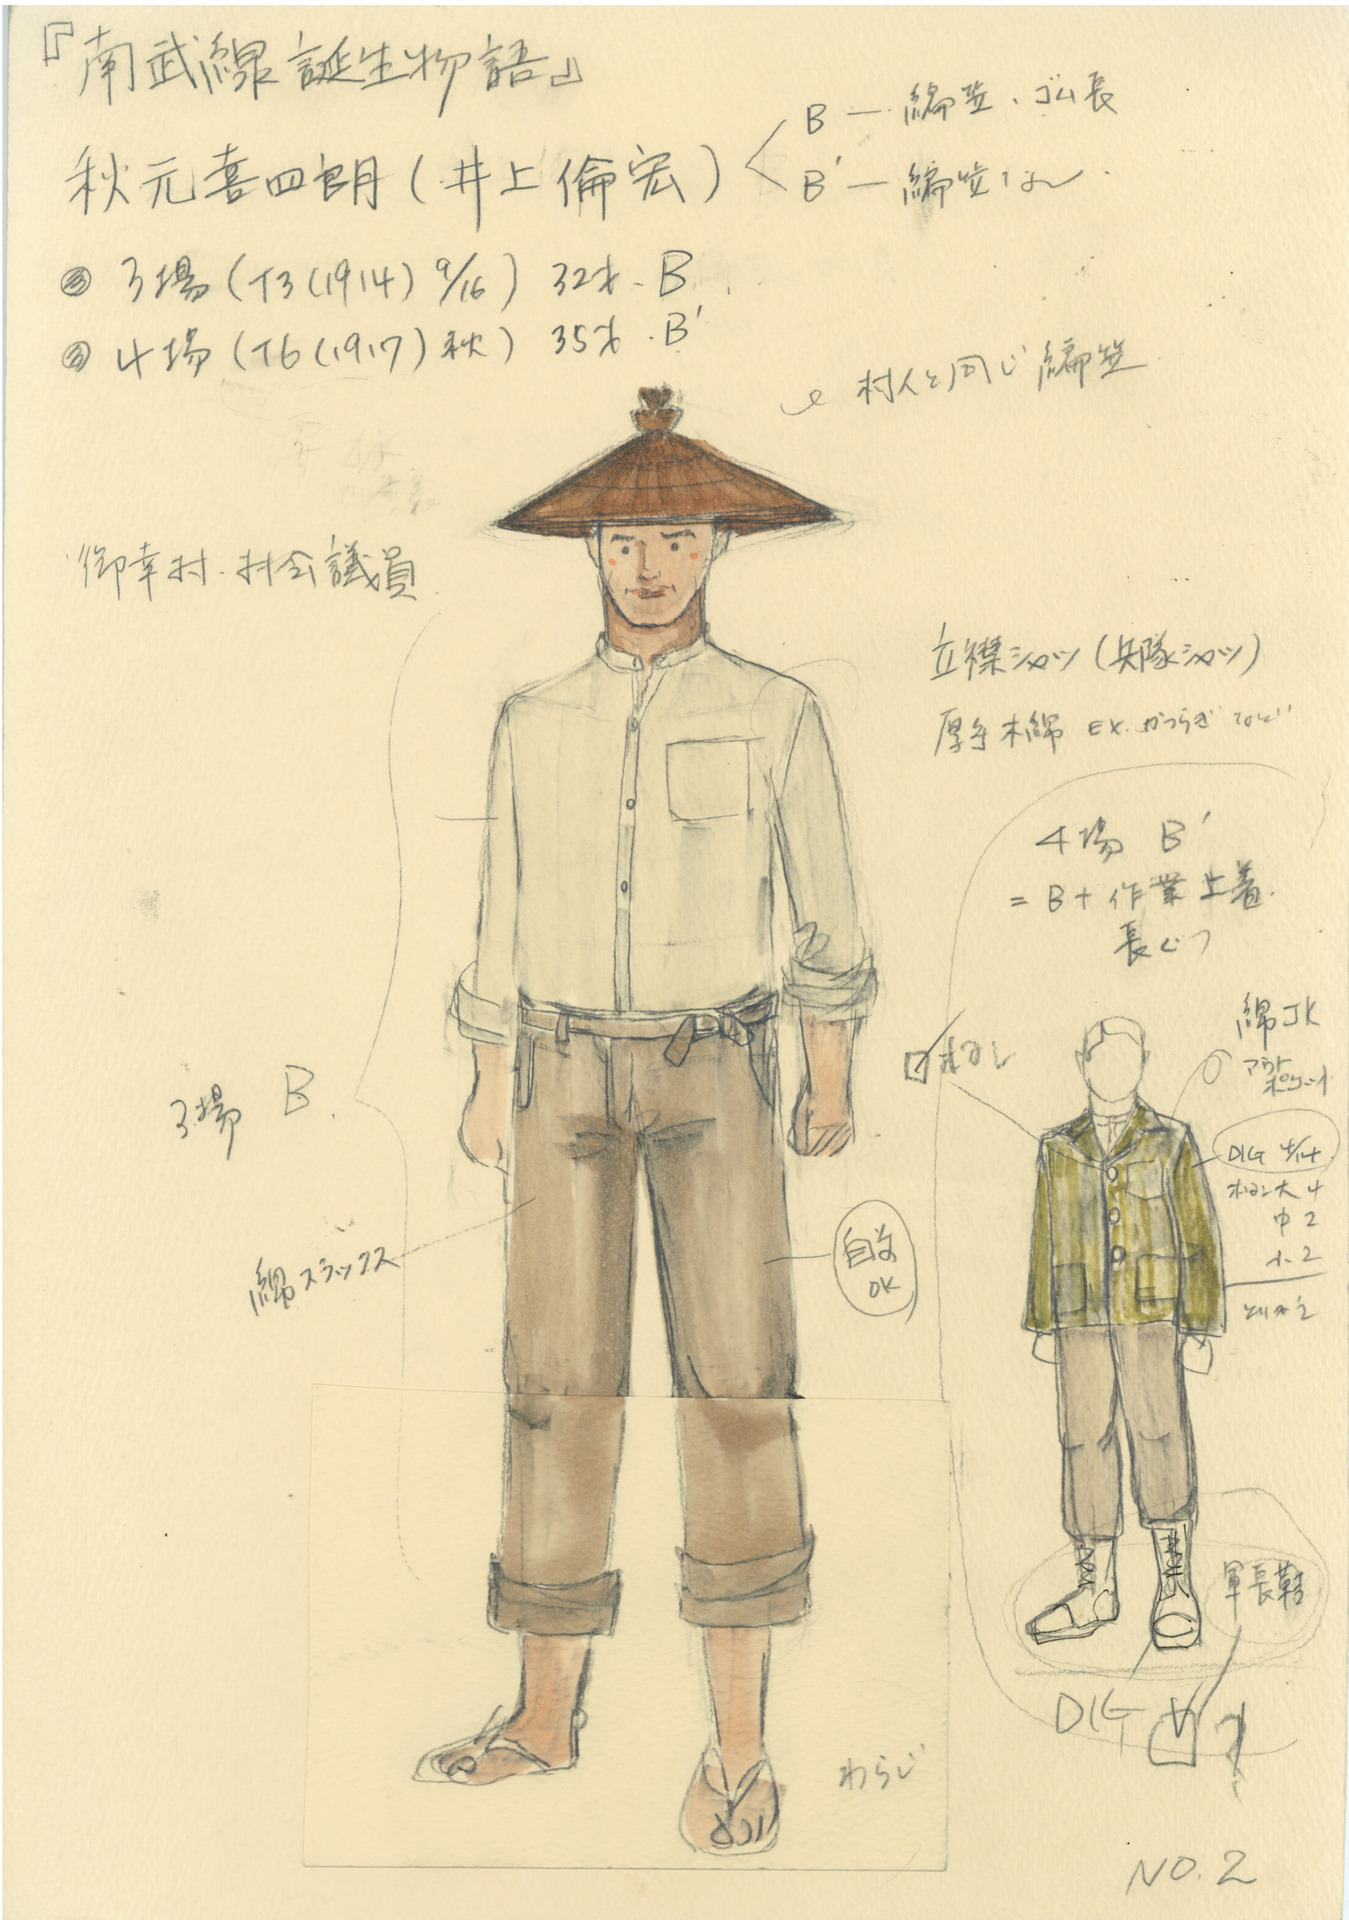 『南武線誕生物語』
秋元喜四郎(井上倫宏)
B — 編笠、ゴム長
B' — 編笠なし
③ 3場(T3(1914) 9/16) 32才. B
③ 4場(T6(1917)秋) 35才. B'
村人と同じ編笠
御幸村.村会議員
立襟シャツ(兵隊シャツ)
厚手木綿 EX. かつらぎ など
4場 B'
= B+作業上着.
長ぐつ
綿JK
アウト
ポケット
3場 B.
DIG 4/14
ボタン大4
中2
小2
綿スラックス
自前
OK
軍長靴
DIG
わらじ
NO.2